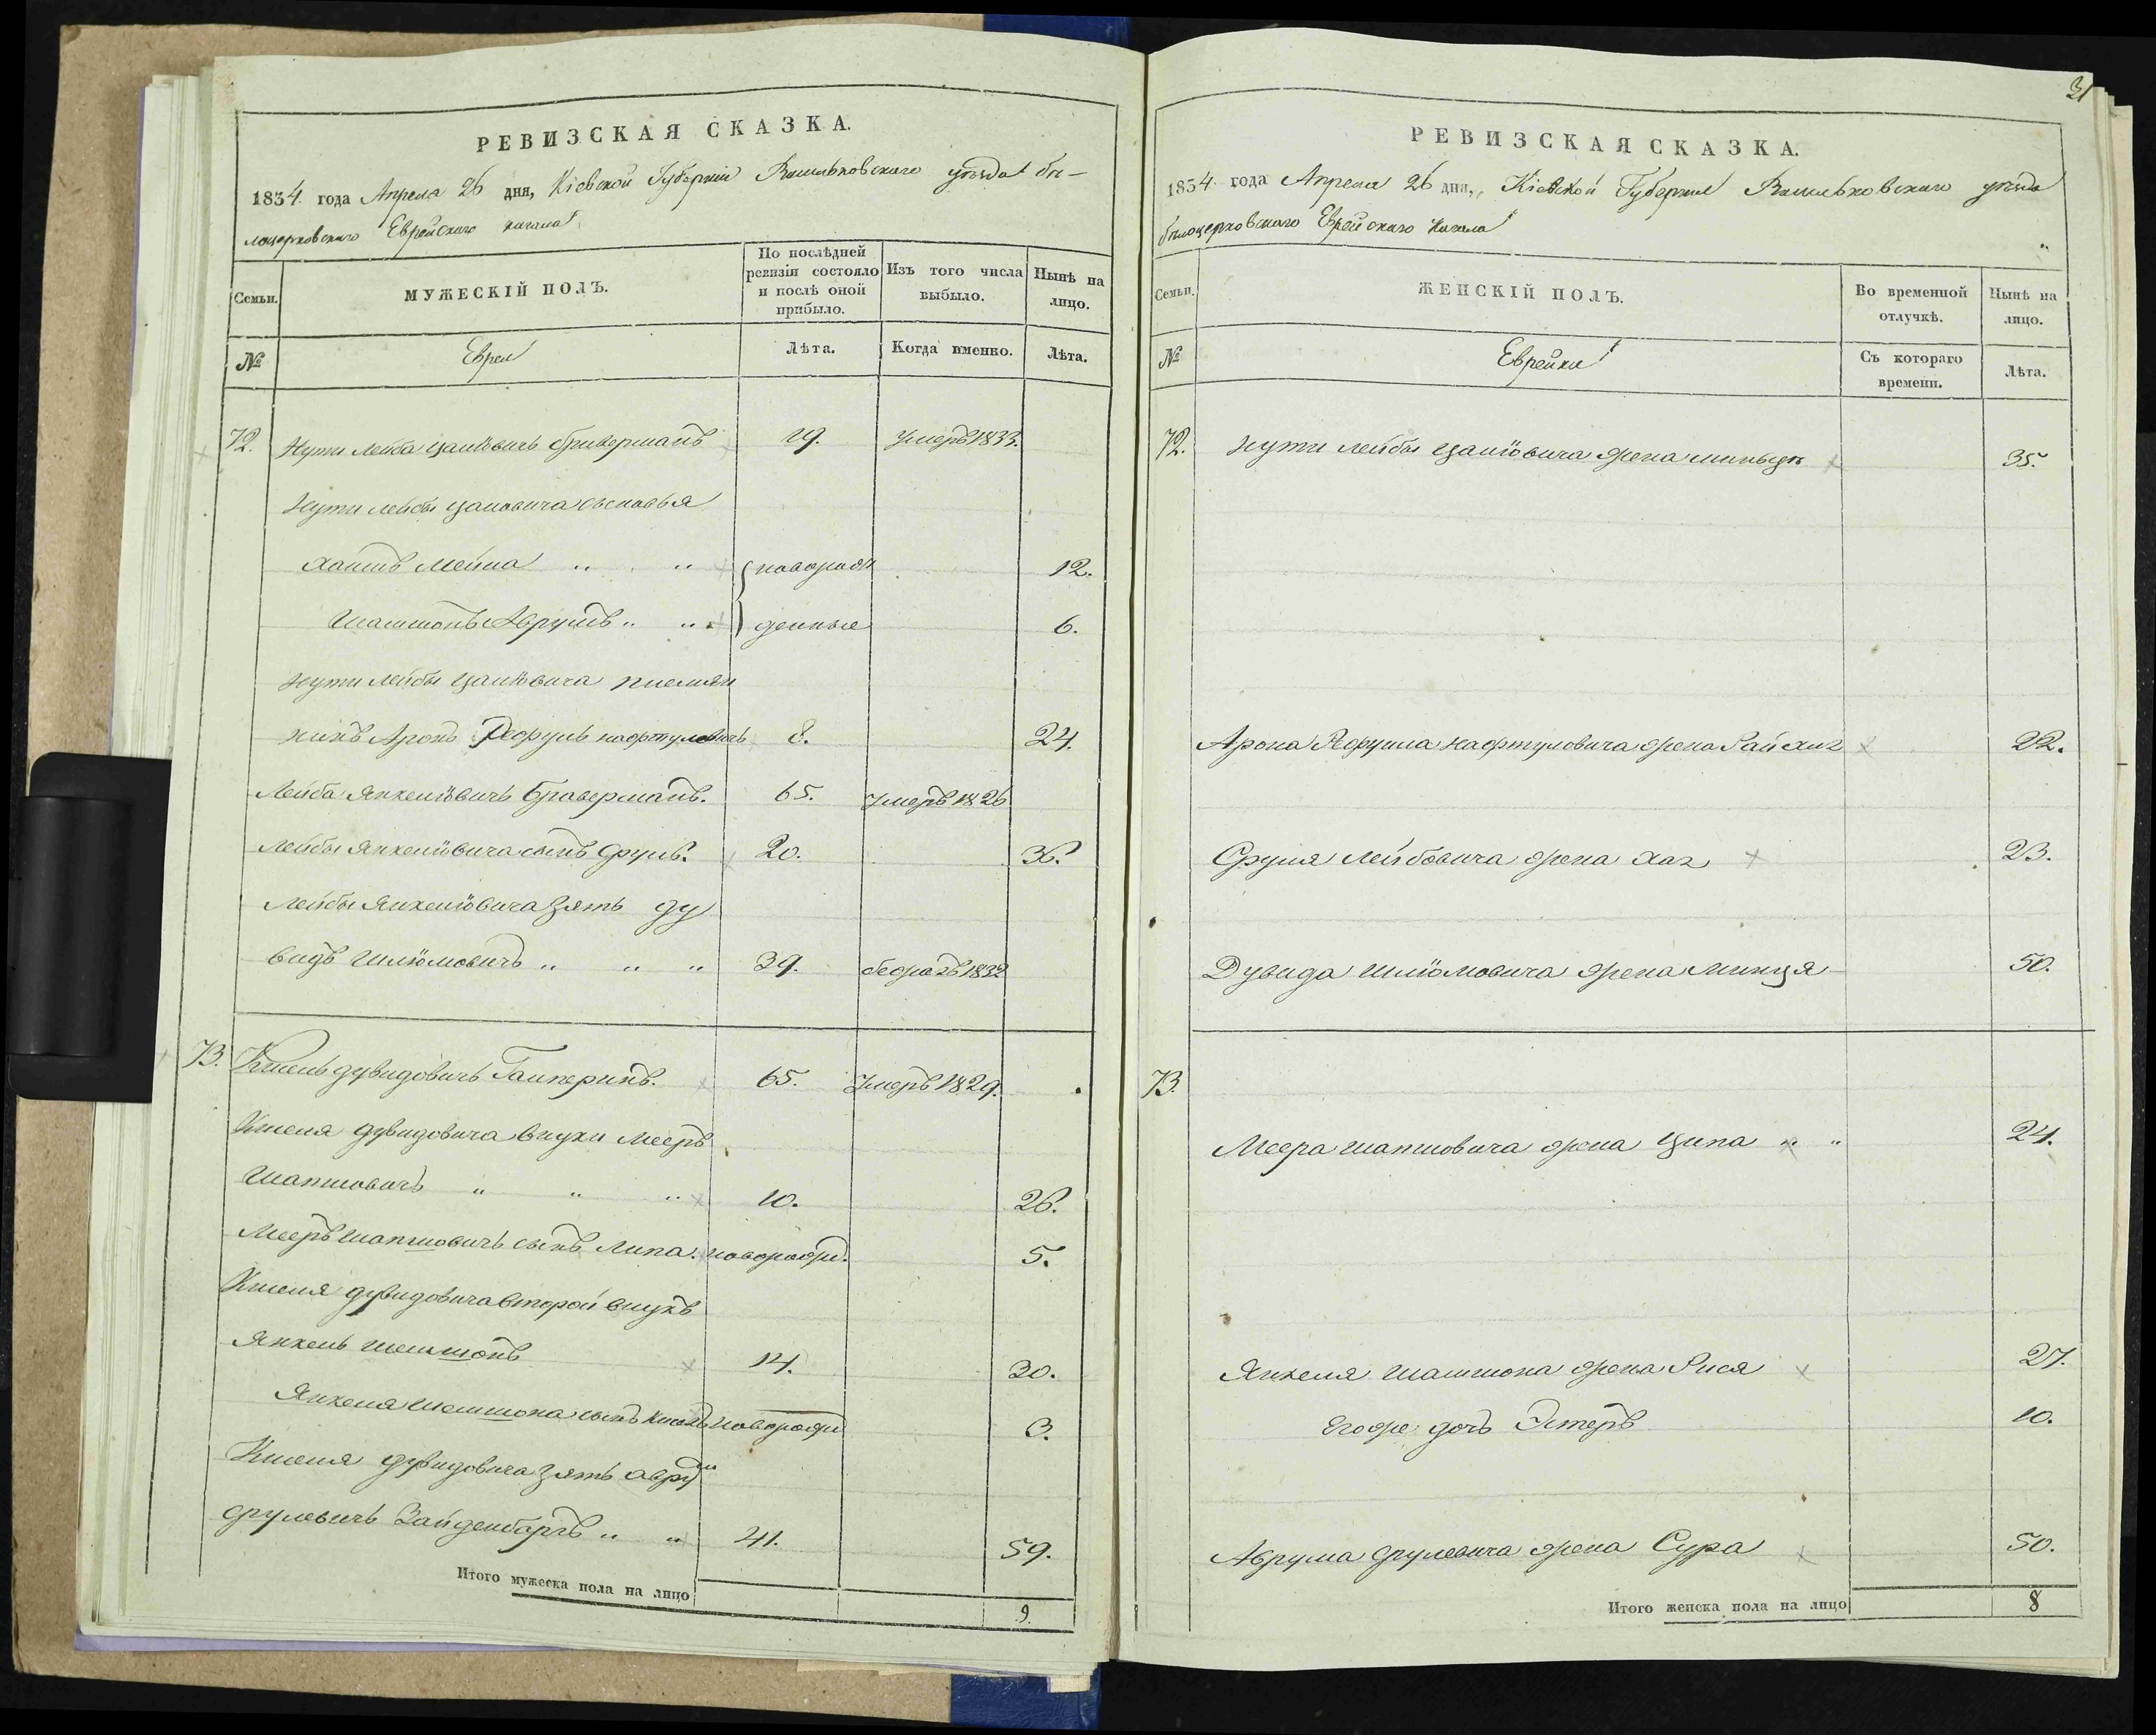 РЕВИЗСКАЯ СКАЗКА.
1834 года Апреля 26 дня, Кіевской Губерніи Васильковскаго уѣзда бѣ-
лоцерковскаго Еврейскаго кагала
Семьи.
МУЖЕСКІЙ ПОЛЪ.
По послѣдней ревизіи состояло и послѣ оной прибыло.
Изъ того числа выбыло.
Нынѣ на лицо.
№
Евреи
Лѣта.
Когда именно.
Лѣта.
72. Нути Лейба Цалiовичь Браверманъ 19. Умеръ 1833.
Нути Лейбы Цалiовича сыновья
Хаимъ Мейша " " новорож 12.
Шамшонъ Аврумъ " " денные 6.
Нути Лейбы Цалiовича племян
никъ Аронъ Рефулъ Нафтуловичь 8. 24.
Лейба Янкелiовичь Браверманъ. 65. Умеръ 1826
Лейбы Янкелiовича сынъ Сруль. 20. 36.
Лейбы Янкелiовича зять Ду
видъ Шлiомовичъ " " " 39. бежалъ 1832
73. Кисель Дувидовичь Гальперинъ. 65. Умеръ 1829.
Киселя Дувидовича внуки Мееръ
Шапшовичь " " " 10. 26.
Мееръ Шапшовичь сынъ Липа. новорожд. 5.
Киселя Дувидовича второй внукъ
Янкель Шемшонъ 14. 30.
Янкеля Шемшона сынъ новорожд 3.
Киселя Дувидовича зять Аврумъ
Срулевичь Зайденбаргъ " " 41. 59.
Итого мужеска пола на лицо 9.
31
РЕВИЗСКАЯ СКАЗКА.
1834 года Апреля 26 дня, Кіевской Губерніи Васильковскаго уѣзда
бѣлоцерковскаго Еврейскаго Кагала
Семьи.
ЖЕНСКІЙ ПОЛЪ.
Во временной отлучкѣ.
Нынѣ на лицо.
№
Еврейки
Съ котораго времени.
Лѣта.
72. Нути Лейбы Цалiовича жена 35.
Арона Рефула Нафтуловича жена 22.
Сруля Лейбовича жена Хая 23.
Дувида Шлiомовича жена Минця 50.
73.
Меера Шапшовича жена Ципа " " 24.
Янкеля Шамшона жена Рися 27.
Егоже дочь Эстеръ 10.
Аврума Срулевича жена Сура 50.
Итого женска пола на лицо 8